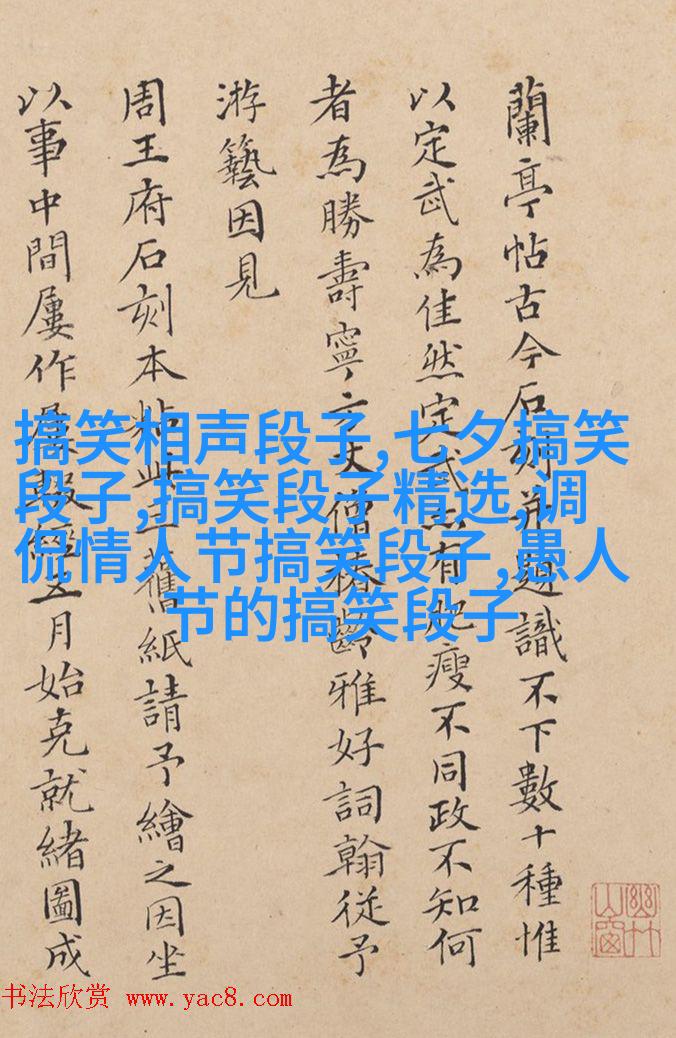 蘭亭帖古今石刻并題識不下數十種惟
以定武為佳然定武亦有肥瘦不同政不知何
者為勝壽寧方丈僧椿齡雅好詞翰從予
游藝因見
周王府石刻本粘此三舊紙請予繪之因坐
以事中間屢作屢輟經五月始克就緒圖成
搞笑相声段子,七夕搞笑
段子,搞笑段子精选,调
侃情人节搞笑段子,愚人
节的搞笑段子
幽竹
山窗
书法欣赏 www.yac8.com